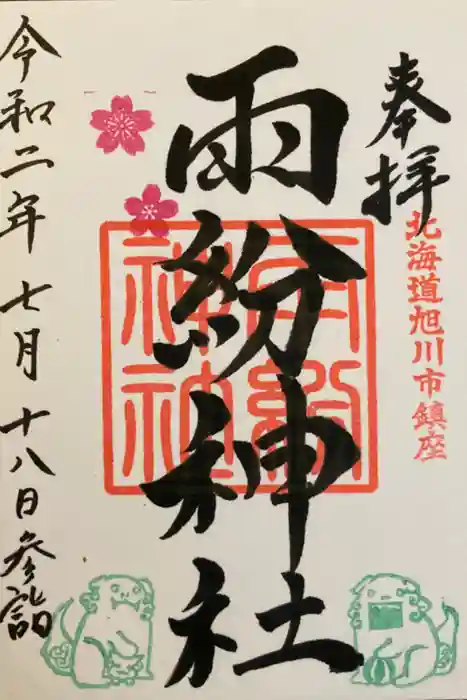 奉拝
北海道旭川市鎮座
雨紛神社
雨紛神社
令和二年 七月 十八日参詣